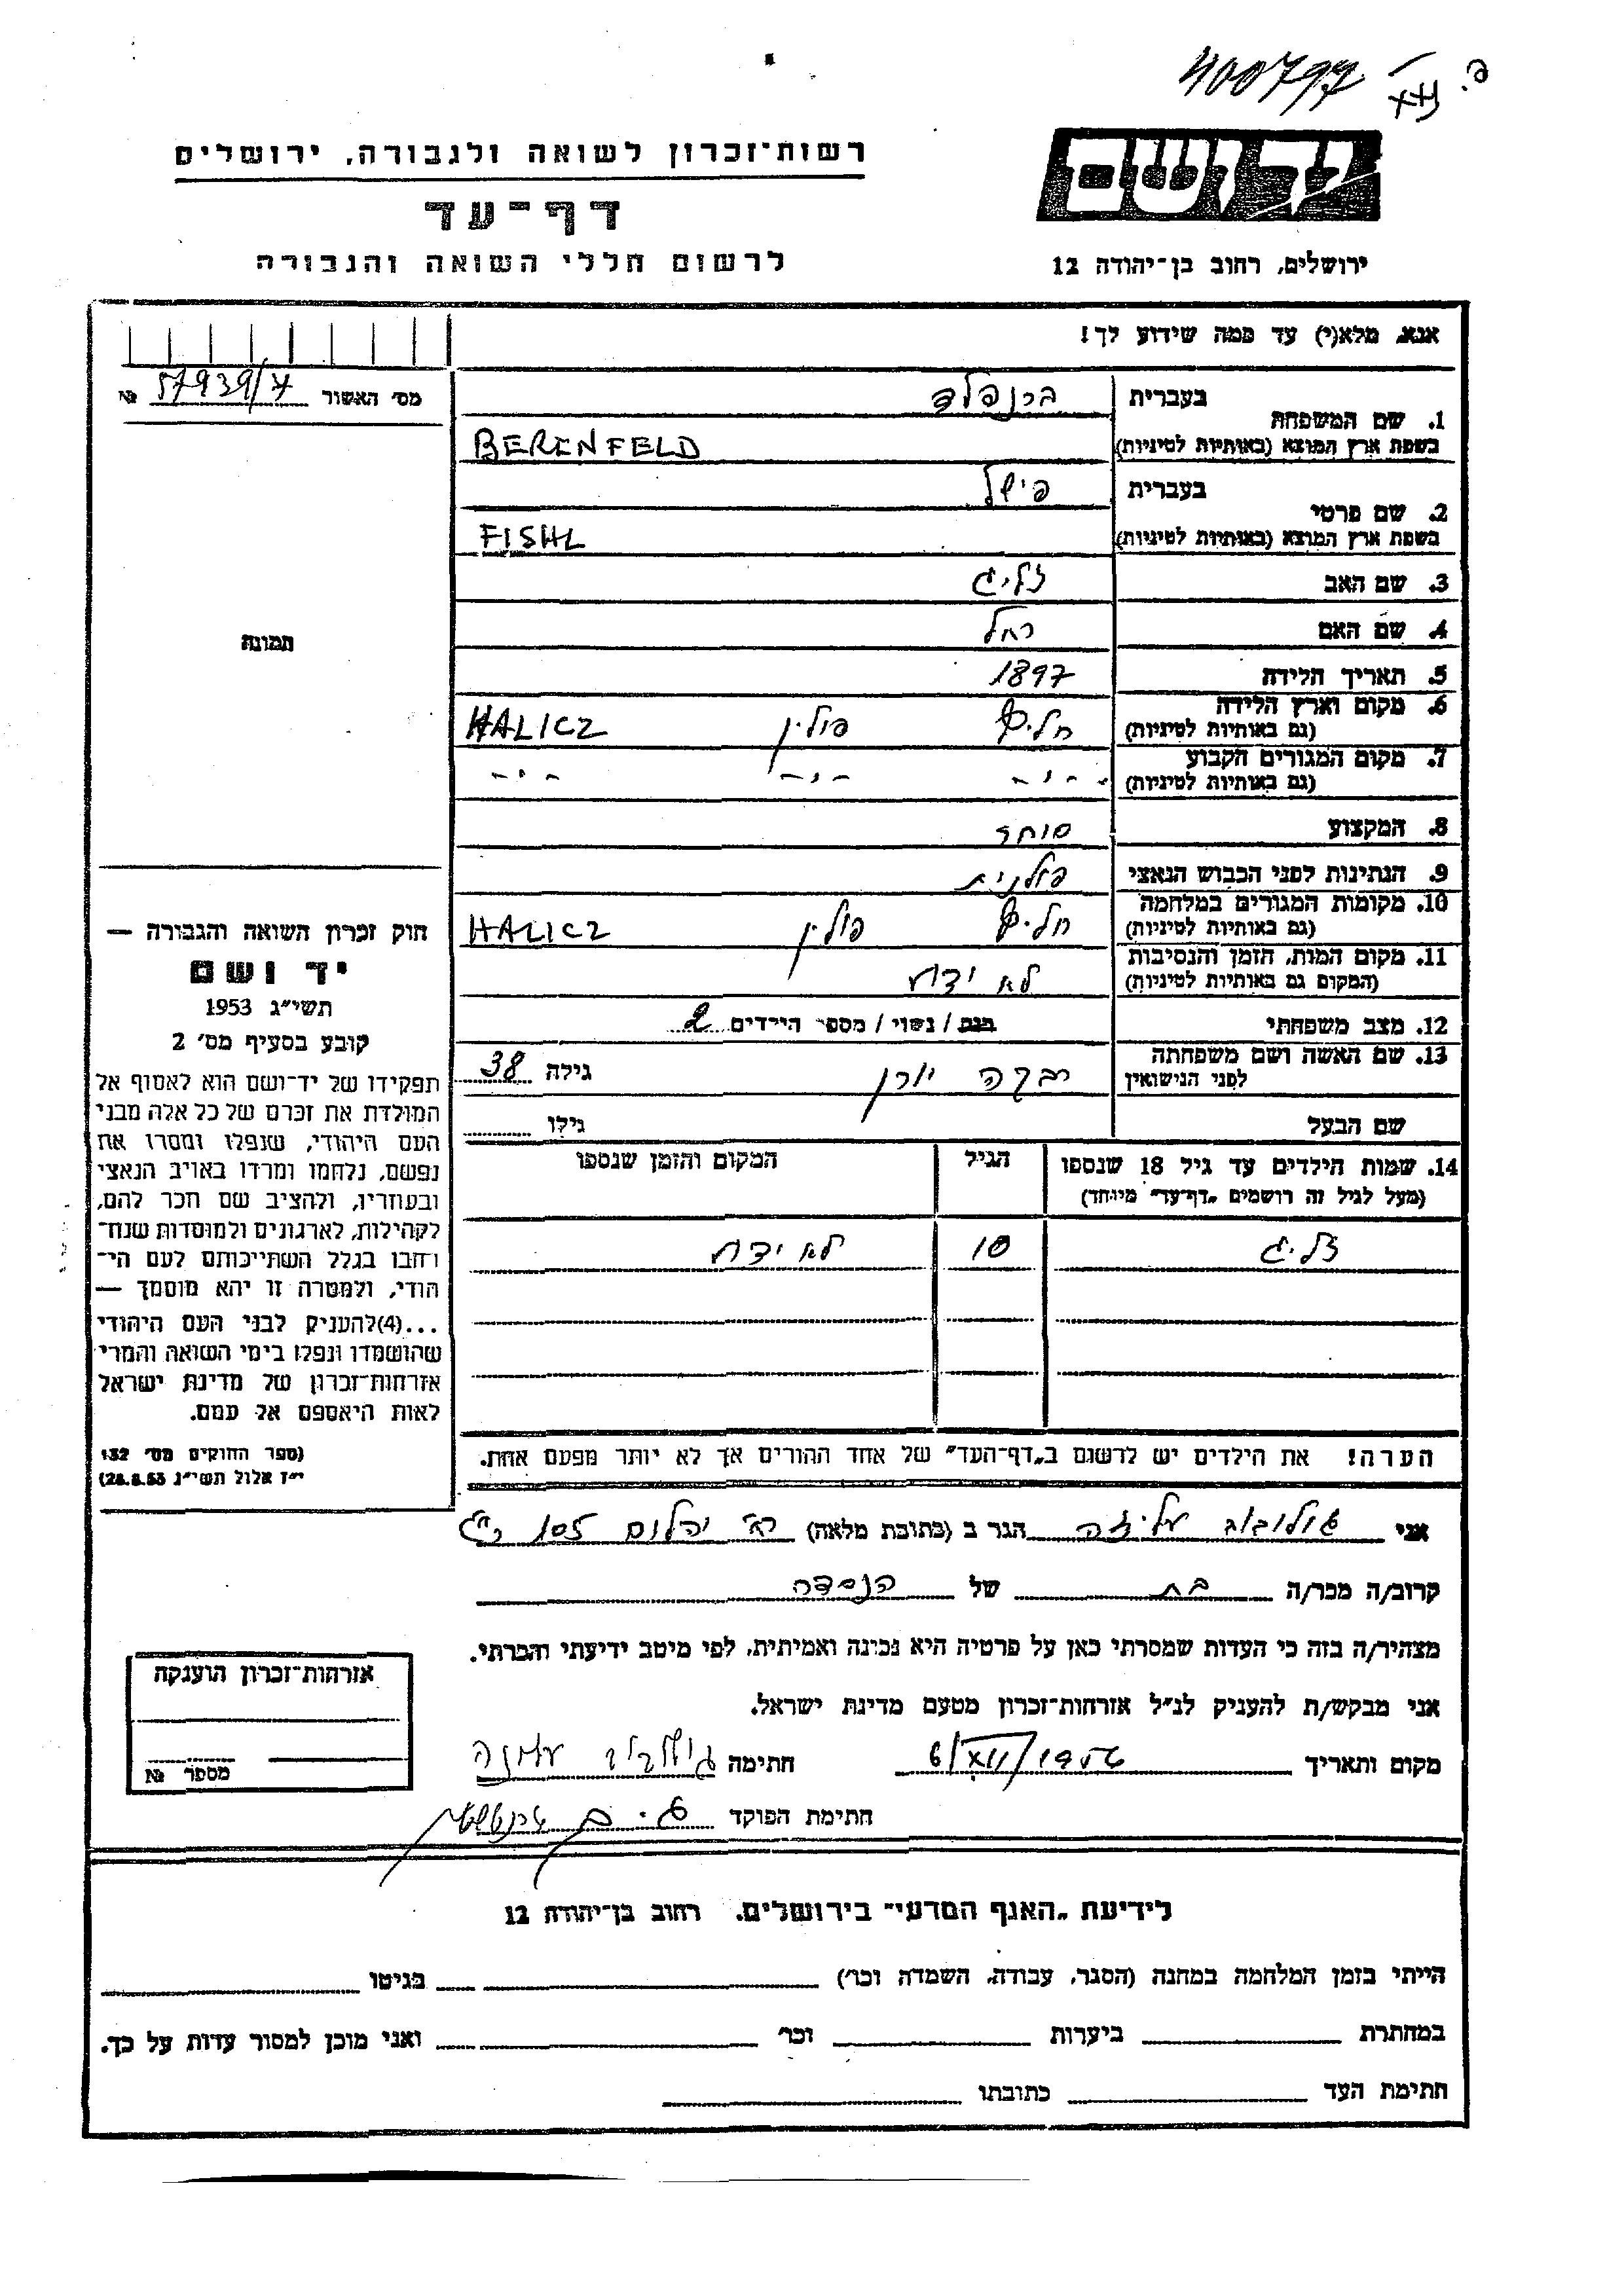 400797
רשות־זכרון לשואה ולגבורה, ירושלים
דף־עד
לרשום חללי השואה והגבורה
יד ושם
ירושלים, רחוב בן־יהודה 12
אנא, מלא(י) עד כמה שידוע לך!
מס׳ האשור 57939/7 №
תמונה
1. שם המשפחה
בעברית ברנפלד
בשפת ארץ המוצא (באותיות לטיניות) BERENFELD
2. שם פרטי
בעברית פישל
בשפת ארץ המוצא (באותיות לטיניות) FISHL
3. שם האב זליג
4. שם האם רחל
5. תאריך הלידה 1897
6. מקום וארץ הלידה (גם באותיות לטיניות) חליץ פולין HALICZ
7. מקום המגורים הקבוע (גם באותיות לטיניות) -״- -״- -״-
8. המקצוע סוחר
9. הנתינות לפני הכבוש הנאצי פולנית
10. מקומות המגורים במלחמה (גם באותיות לטיניות) חליץ פולין HALICZ
11. מקום המות, הזמן והנסיבות (המקום גם באותיות לטיניות) לא ידוע
12. מצב משפחתי רווק / נשוי / מספר הילדים 2
13. שם האשה ושם משפחתה לפני הנישואין רבקה גילה 38
שם הבעל גילו
14. שמות הילדים עד גיל 18 שנספו (מעל לגיל זה רושמים „דף־עד״ מיוחד) הגיל המקום והזמן שנספו
זליג 10 לא ידוע
הערה! את הילדים יש לרשום ב„דף־העד״ של אחד ההורים אך לא יותר מפעם אחת.
חוק זכרון השואה והגבורה —
יד ושם
תשי״ג 1953
קובע בסעיף מס׳ 2
תפקידו של יד־ושם הוא לאסוף אל
המולדת את זכרם של כל אלה מבני
העם היהודי, שנפלו ומסרו את
נפשם, נלחמו ומרדו באויב הנאצי
ובעוזריו, ולהציב שם וזכר להם,
לקהילות, לארגונים ולמוסדות שנח־
רחבו בגלל השתייכותם לעם הי־
הודי, ולמטרה זו יהא מוסמך —
...(4)להעניק לבני העם היהודי
שהושמדו ונפלו בימי השואה והמרי
אזרחות־זכרון של מדינת ישראל
לאות היאספם אל עמם.
(ספר החוקים מס׳ 132
י״ז אלול תשי״ג 28.8.53)
אני גולובוב עליזה הגר ב (כתובת מלאה) רח׳ יהלום 105 ר״ג
קרוב/ה מכר/ה בת של הנספה
מצהיר/ה בזה כי העדות שמסרתי כאן על פרטיה היא נכונה ואמיתית, לפי מיטב ידיעתי והכרתי.
אני מבקש/ת להעניק לנ״ל אזרחות־זכרון מטעם מדינת ישראל.
מקום ותאריך חתימה
חתימת הפוקד
אזרחות־זכרון הוענקה
מספר №
לידיעת „האגף המדעי״ בירושלים, רחוב בן־יהודה 12
הייתי בזמן המלחמה במחנה (הסגר, עבודה, השמדה וכו׳) בגיטו
במחתרת ביערות וכו׳ ואני מוכן למסור עדות על כך.
חתימת העד כתובתו